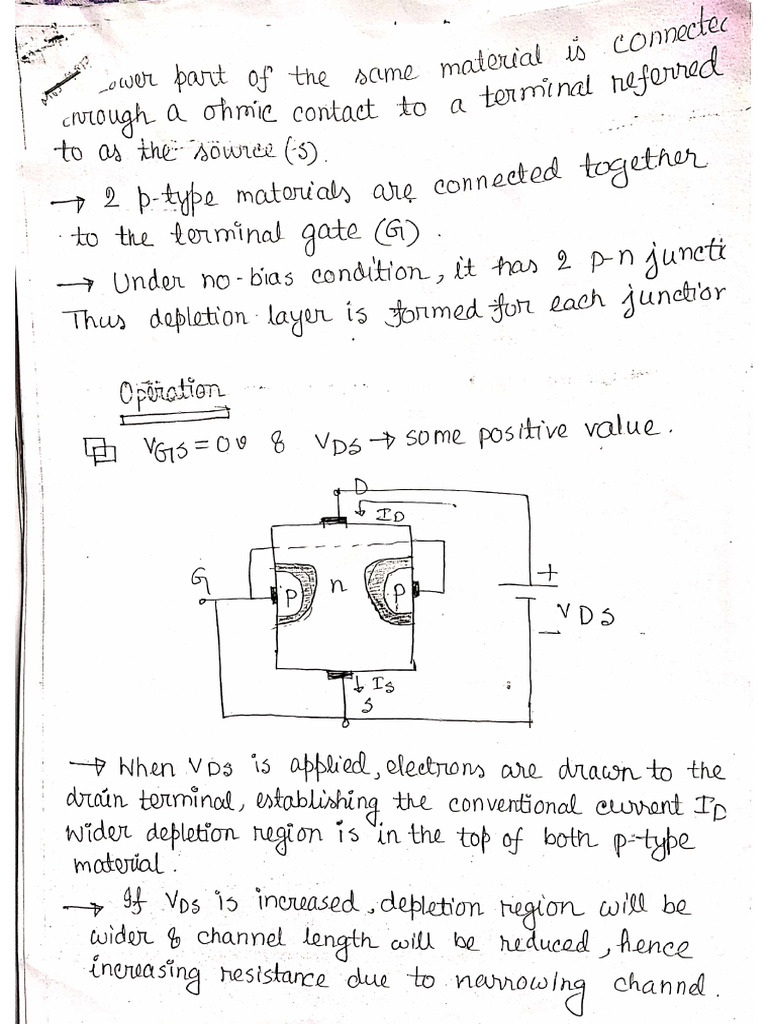 Lower part of the same material is connected
through a ohmic contact to a terminal referred
to as the source (s).
→ 2 p-type materials are connected together
to the terminal gate (G).
→ Under no-bias condition, it has 2 p-n juncti
Thus depletion layer is formed for each junction
Operation
VGS = 0v & VDS → some positive value.
D
ID
G
p n p
+
VDS
-
IS
S
→ When VDS is applied, electrons are drawn to the
drain terminal, establishing the conventional current ID
wider depletion region is in the top of both p-type
material.
→ If VDS is increased, depletion region will be
wider & channel length will be reduced, hence
increasing resistance due to narrowing channel.